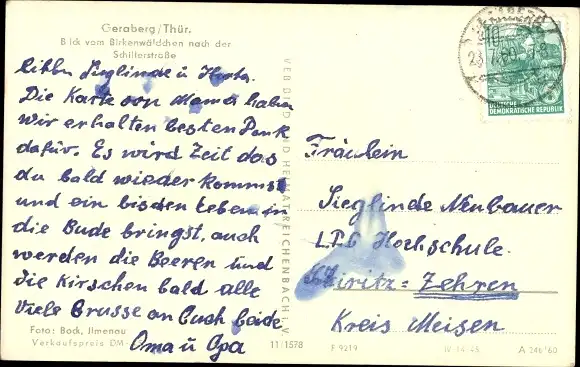 Geraberg/Thür.
Blick vom Birkenwäldchen nach der
Schillerstraße
Die Karte von Mama haben
wir erhalten besten Dank
dafür. Es wird Zeit das
du bald wieder kommst
und ein bisden Leben in
die Bude bringst, auch
werden die Beeren und
die Kirschen bald alle
Viele Grusse an Euch beide
Oma u Opa
Foto: Bock, Ilmenau
Verkaufspreis DM
11/1578
VEB BILD UND HEIMAT REICHENBACH i. V.
GERABERG
DEUTSCHE
DEMOKRATISCHE REPUBLIK
Fräulein
Sieglinde Neubauer
LPG Hochschule
Zehren
Kreis Meisen
F 9219
A 246/60